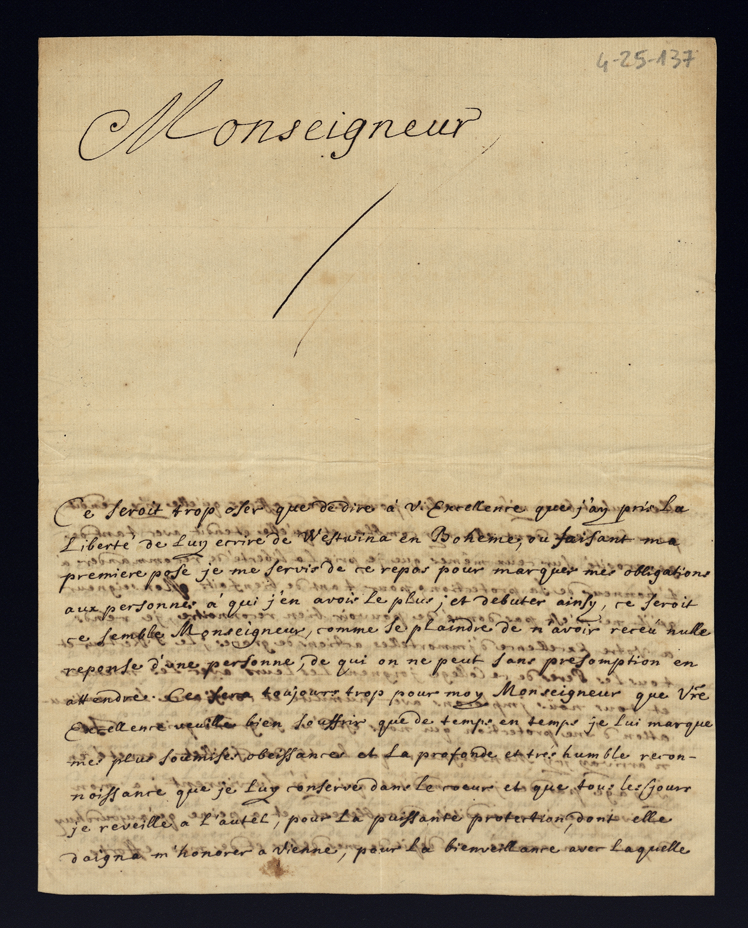 4-25-137
Monseigneur
Ce seroit trop oser que de dire à V. Excellence que j'ay pris La
Liberté de Luy ecrire de Westwina en Boheme, ou faisant ma
premiere pose je me servis de ce repos pour marquer mes obligations
aux personnes à qui j'en avois Le plus, et debuter ainsy, ce seroit
ce semble Monseigneur, comme se plaindre de n'avoir receu nulle
reponse d'une personne, de qui on ne peut sans presomption en
attendre. Ce sera toujours trop pour moy Monseigneur que Vre
Excellence veuille bien souffrir que de temps en temps je Lui marque
mes plus soumises obeissances et La profonde et tres humble recon-
noissance que je Luy conserve dans le coeur et que tous les jours
je reveille a L'autel, pour La puissante protection, dont elle
daigna m'honorer a Vienne, pour La bienveillance avec Laquelle